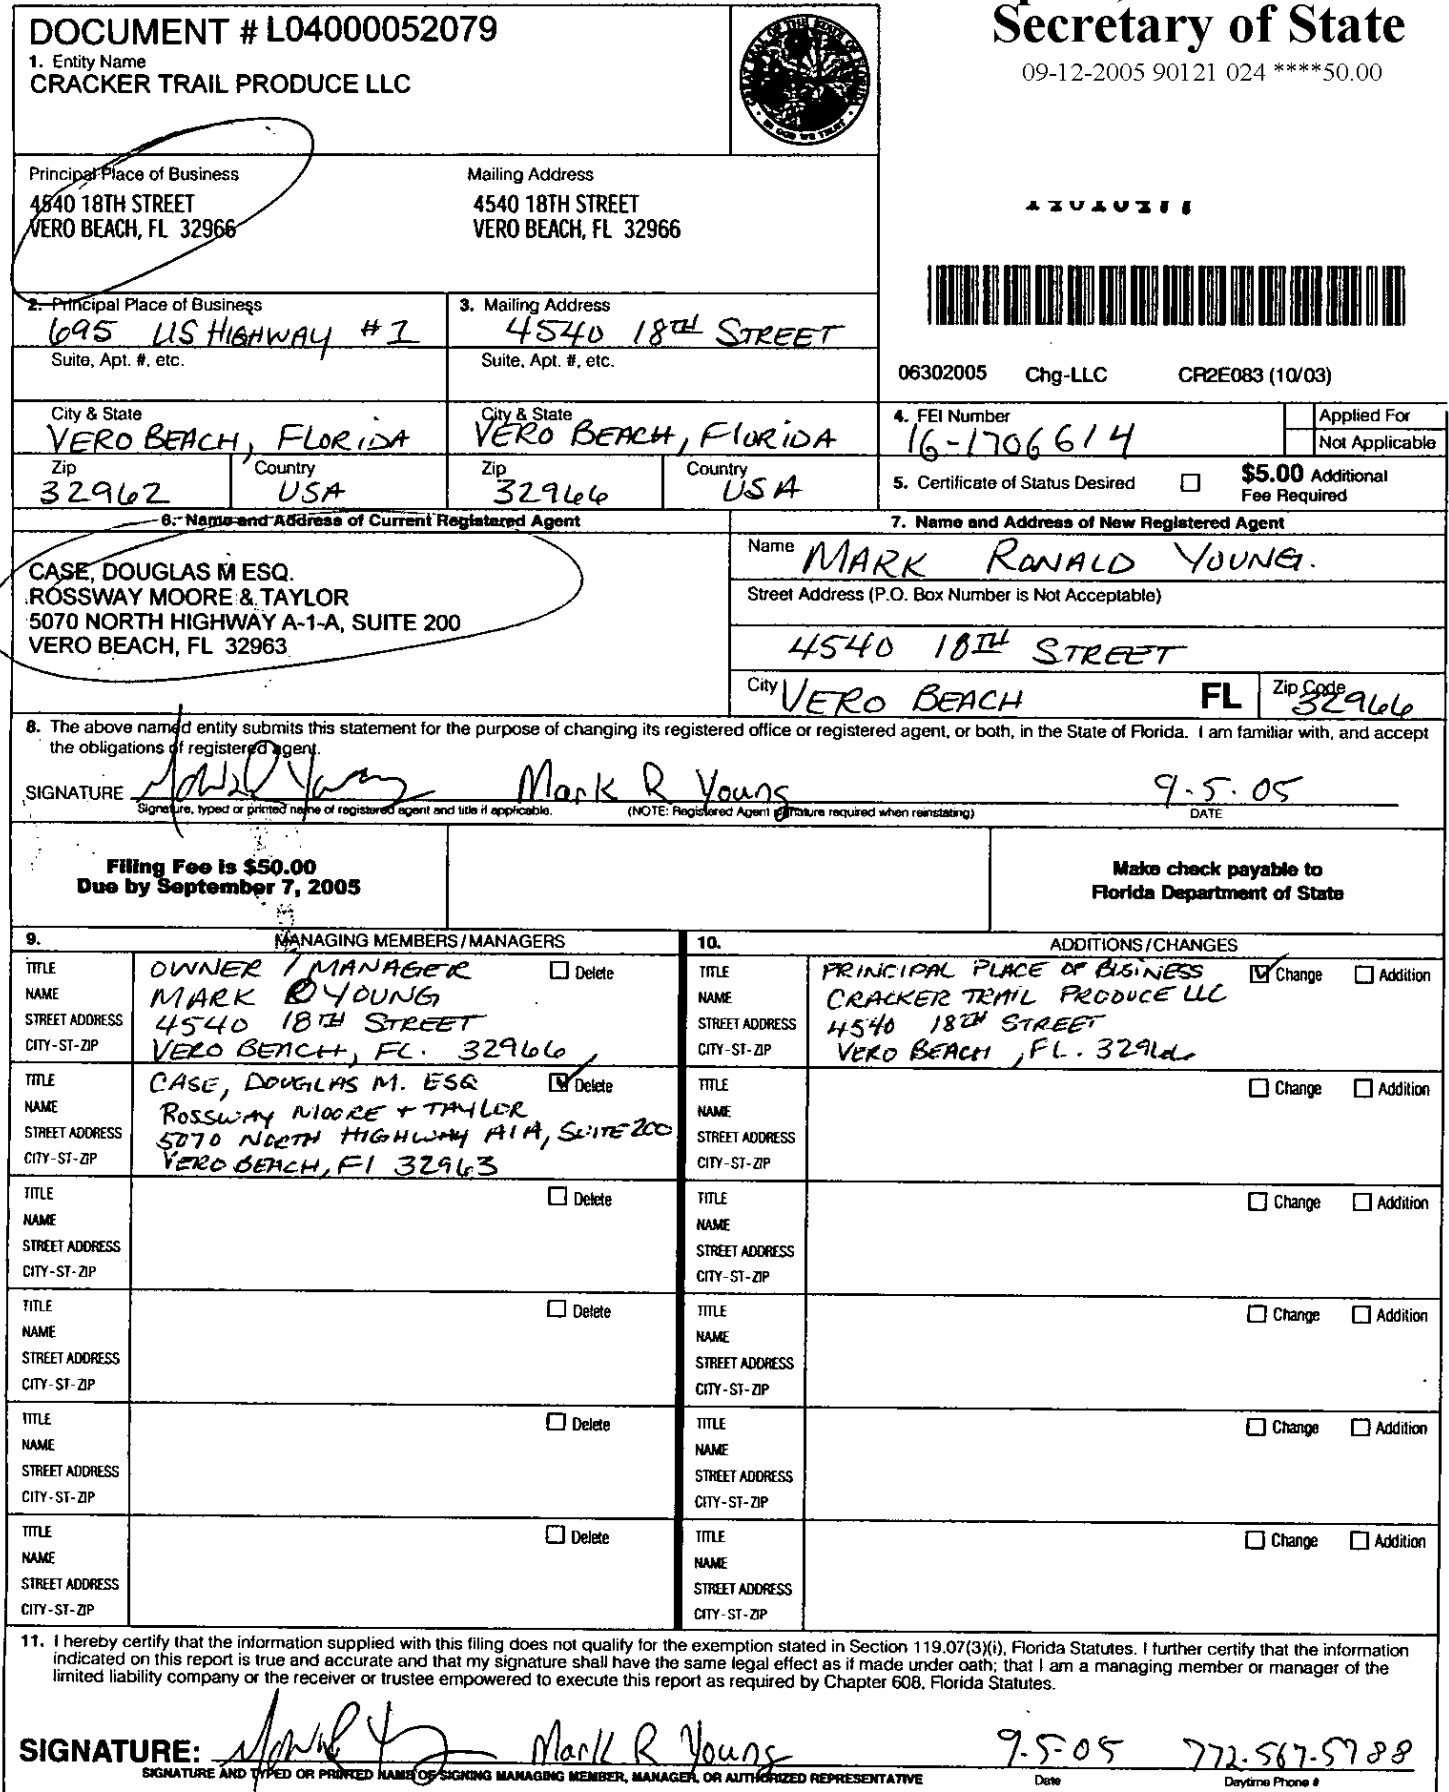 DOCUMENT # L04000052079
1. Entity Name
CRACKER TRAIL PRODUCE LLC
Secretary of State
09-12-2005 90121 024 ****50.00
Principal Place of Business
4540 18TH STREET
VERO BEACH, FL 32966
Mailing Address
4540 18TH STREET
VERO BEACH, FL 32966
2. Principal Place of Business
695 US HIGHWAY #1
Suite, Apt. #, etc.
City & State
VERO BEACH, FLORIDA
Zip
32962
Country
USA
3. Mailing Address
4540 18TH STREET
Suite, Apt. #, etc.
City & State
VERO BEACH, FLORIDA
Zip
32966
Country
USA
06302005 Chg-LLC CR2E083 (10/03)
4. FEI Number
16-1706614
Applied For
Not Applicable
5. Certificate of Status Desired
$5.00 Additional
Fee Required
6. Name and Address of Current Registered Agent
CASE, DOUGLAS M ESQ.
ROSSWAY MOORE & TAYLOR
5070 NORTH HIGHWAY A-1-A, SUITE 200
VERO BEACH, FL 32963
7. Name and Address of New Registered Agent
Name MARK RONALD YOUNG.
Street Address (P.O. Box Number is Not Acceptable)
4540 18TH STREET
City VERO BEACH FL Zip Code 32966
8. The above named entity submits this statement for the purpose of changing its registered office or registered agent, or both, in the State of Florida. I am familiar with, and accept
the obligations of registered agent.
SIGNATURE Mark R Young 9.5.05
Signature, typed or printed name of registered agent and title if applicable. (NOTE: Registered Agent signature required when reinstating) DATE
Filing Fee is $50.00
Due by September 7, 2005
Make check payable to
Florida Department of State
9. MANAGING MEMBERS/MANAGERS
TITLE OWNER / MANAGER Delete
NAME MARK R YOUNG
STREET ADDRESS 4540 18TH STREET
CITY-ST-ZIP VERO BEACH, FL. 32966
TITLE CASE, DOUGLAS M. ESQ Delete
NAME ROSSWAY MOORE + TAYLOR
STREET ADDRESS 5070 NORTH HIGHWAY A1A, SUITE 200
CITY-ST-ZIP VERO BEACH, Fl 32963
TITLE Delete
NAME
STREET ADDRESS
CITY-ST-ZIP
TITLE Delete
NAME
STREET ADDRESS
CITY-ST-ZIP
TITLE Delete
NAME
STREET ADDRESS
CITY-ST-ZIP
TITLE Delete
NAME
STREET ADDRESS
CITY-ST-ZIP
10. ADDITIONS/CHANGES
TITLE PRINCIPAL PLACE OF BUSINESS Change Addition
NAME CRACKER TRAIL PRODUCE LLC
STREET ADDRESS 4540 18TH STREET
CITY-ST-ZIP VERO BEACH, FL. 32966
TITLE Change Addition
NAME
STREET ADDRESS
CITY-ST-ZIP
TITLE Change Addition
NAME
STREET ADDRESS
CITY-ST-ZIP
TITLE Change Addition
NAME
STREET ADDRESS
CITY-ST-ZIP
TITLE Change Addition
NAME
STREET ADDRESS
CITY-ST-ZIP
TITLE Change Addition
NAME
STREET ADDRESS
CITY-ST-ZIP
11. I hereby certify that the information supplied with this filing does not qualify for the exemption stated in Section 119.07(3)(i), Florida Statutes. I further certify that the information
indicated on this report is true and accurate and that my signature shall have the same legal effect as if made under oath; that I am a managing member or manager of the
limited liability company or the receiver or trustee empowered to execute this report as required by Chapter 608, Florida Statutes.
SIGNATURE: Mark R Young 9.5-05 772.567.5788
SIGNATURE AND TYPED OR PRINTED NAME OF SIGNING MANAGING MEMBER, MANAGER, OR AUTHORIZED REPRESENTATIVE Date Daytime Phone #